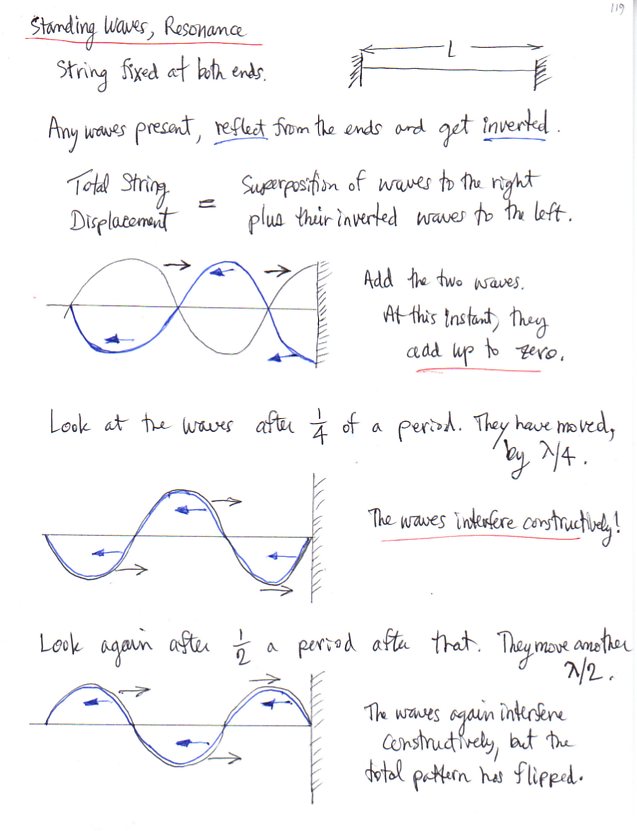 119
Standing Waves, Resonance
String fixed at both ends.
L
Any waves present, reflect from the ends and get inverted.
Total String
Displacement
=
Superposition of waves to the right
plus their inverted waves to the left.
Add the two waves.
At this instant, they
add up to zero.
Look at the waves after 1/4 of a period. They have moved,
by λ/4.
The waves interfere constructively!
Look again after 1/2 a period after that. They move another
λ/2.
The waves again interfere
constructively, but the
total pattern has flipped.